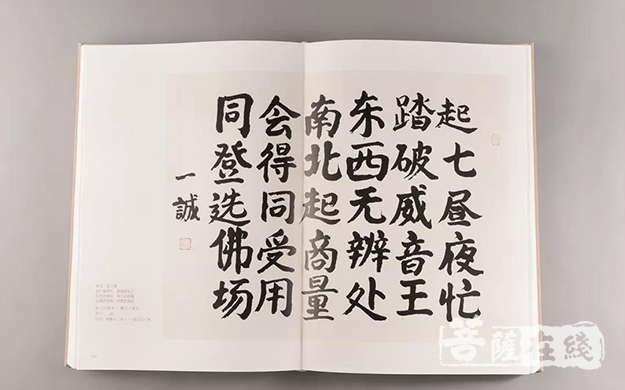 起七昼夜忙
踏破威音王
东西无辨处
南北起商量
会得同受用
同登选佛场
一誠
菩薩在綫